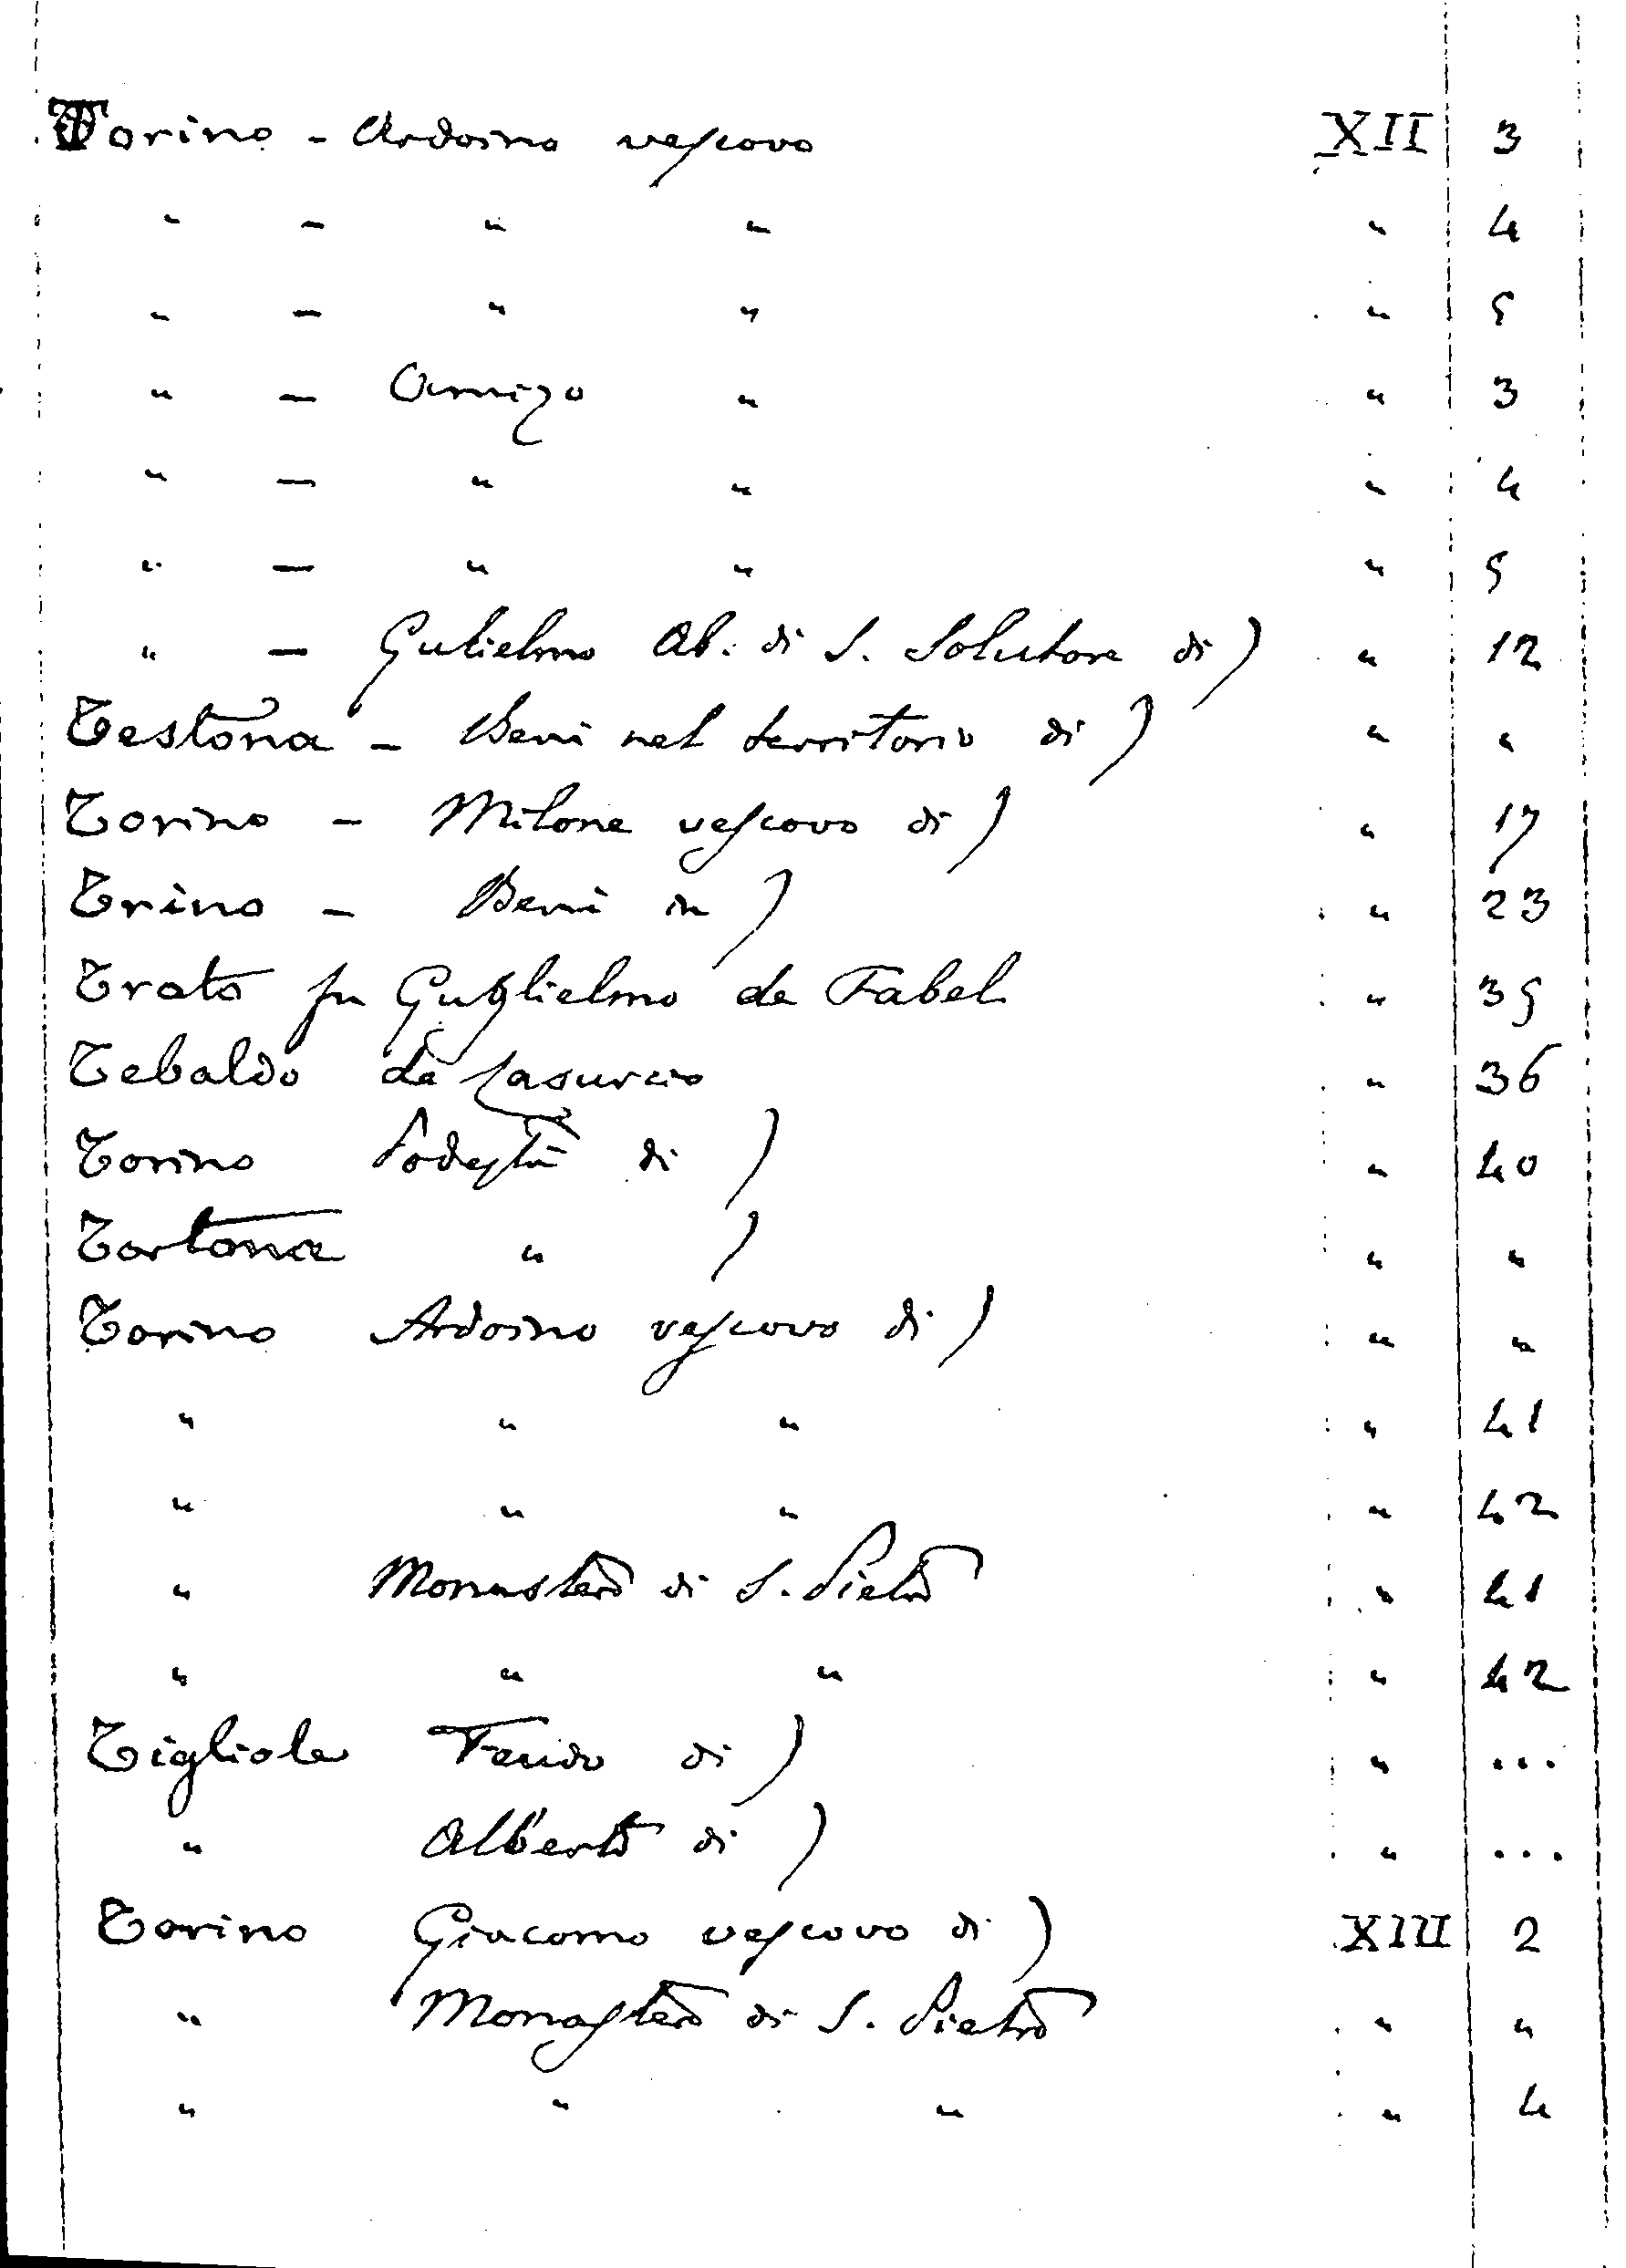 Torino - Ardoino vescovo XII 3
" - " " " 4
" - " " " 5
" - Amizo " " 3
" - " " " 4
" - " " " 5
" - Gulielmo Ab. di S. Solutore di) " 12
Testona - Beni nel territorio di) " "
Torino - Milone vescovo di) " 17
Trino - Beni in) " 23
Trato fu Guglielmo de Fabel " 35
Tebaldo da " 36
Torino Podestà di) " 40
Tortona " ) " "
Torino Ardoino vescovo di) " "
" " " " 41
" " " " 42
" Monastero di S. Pietro " 41
" " " " 42
Tigliole Feudo di) " ...
" Alberto di) " ...
Torino Giacomo vescovo di) XIII 2
" Monastero di S. Pietro " "
" " " " 4